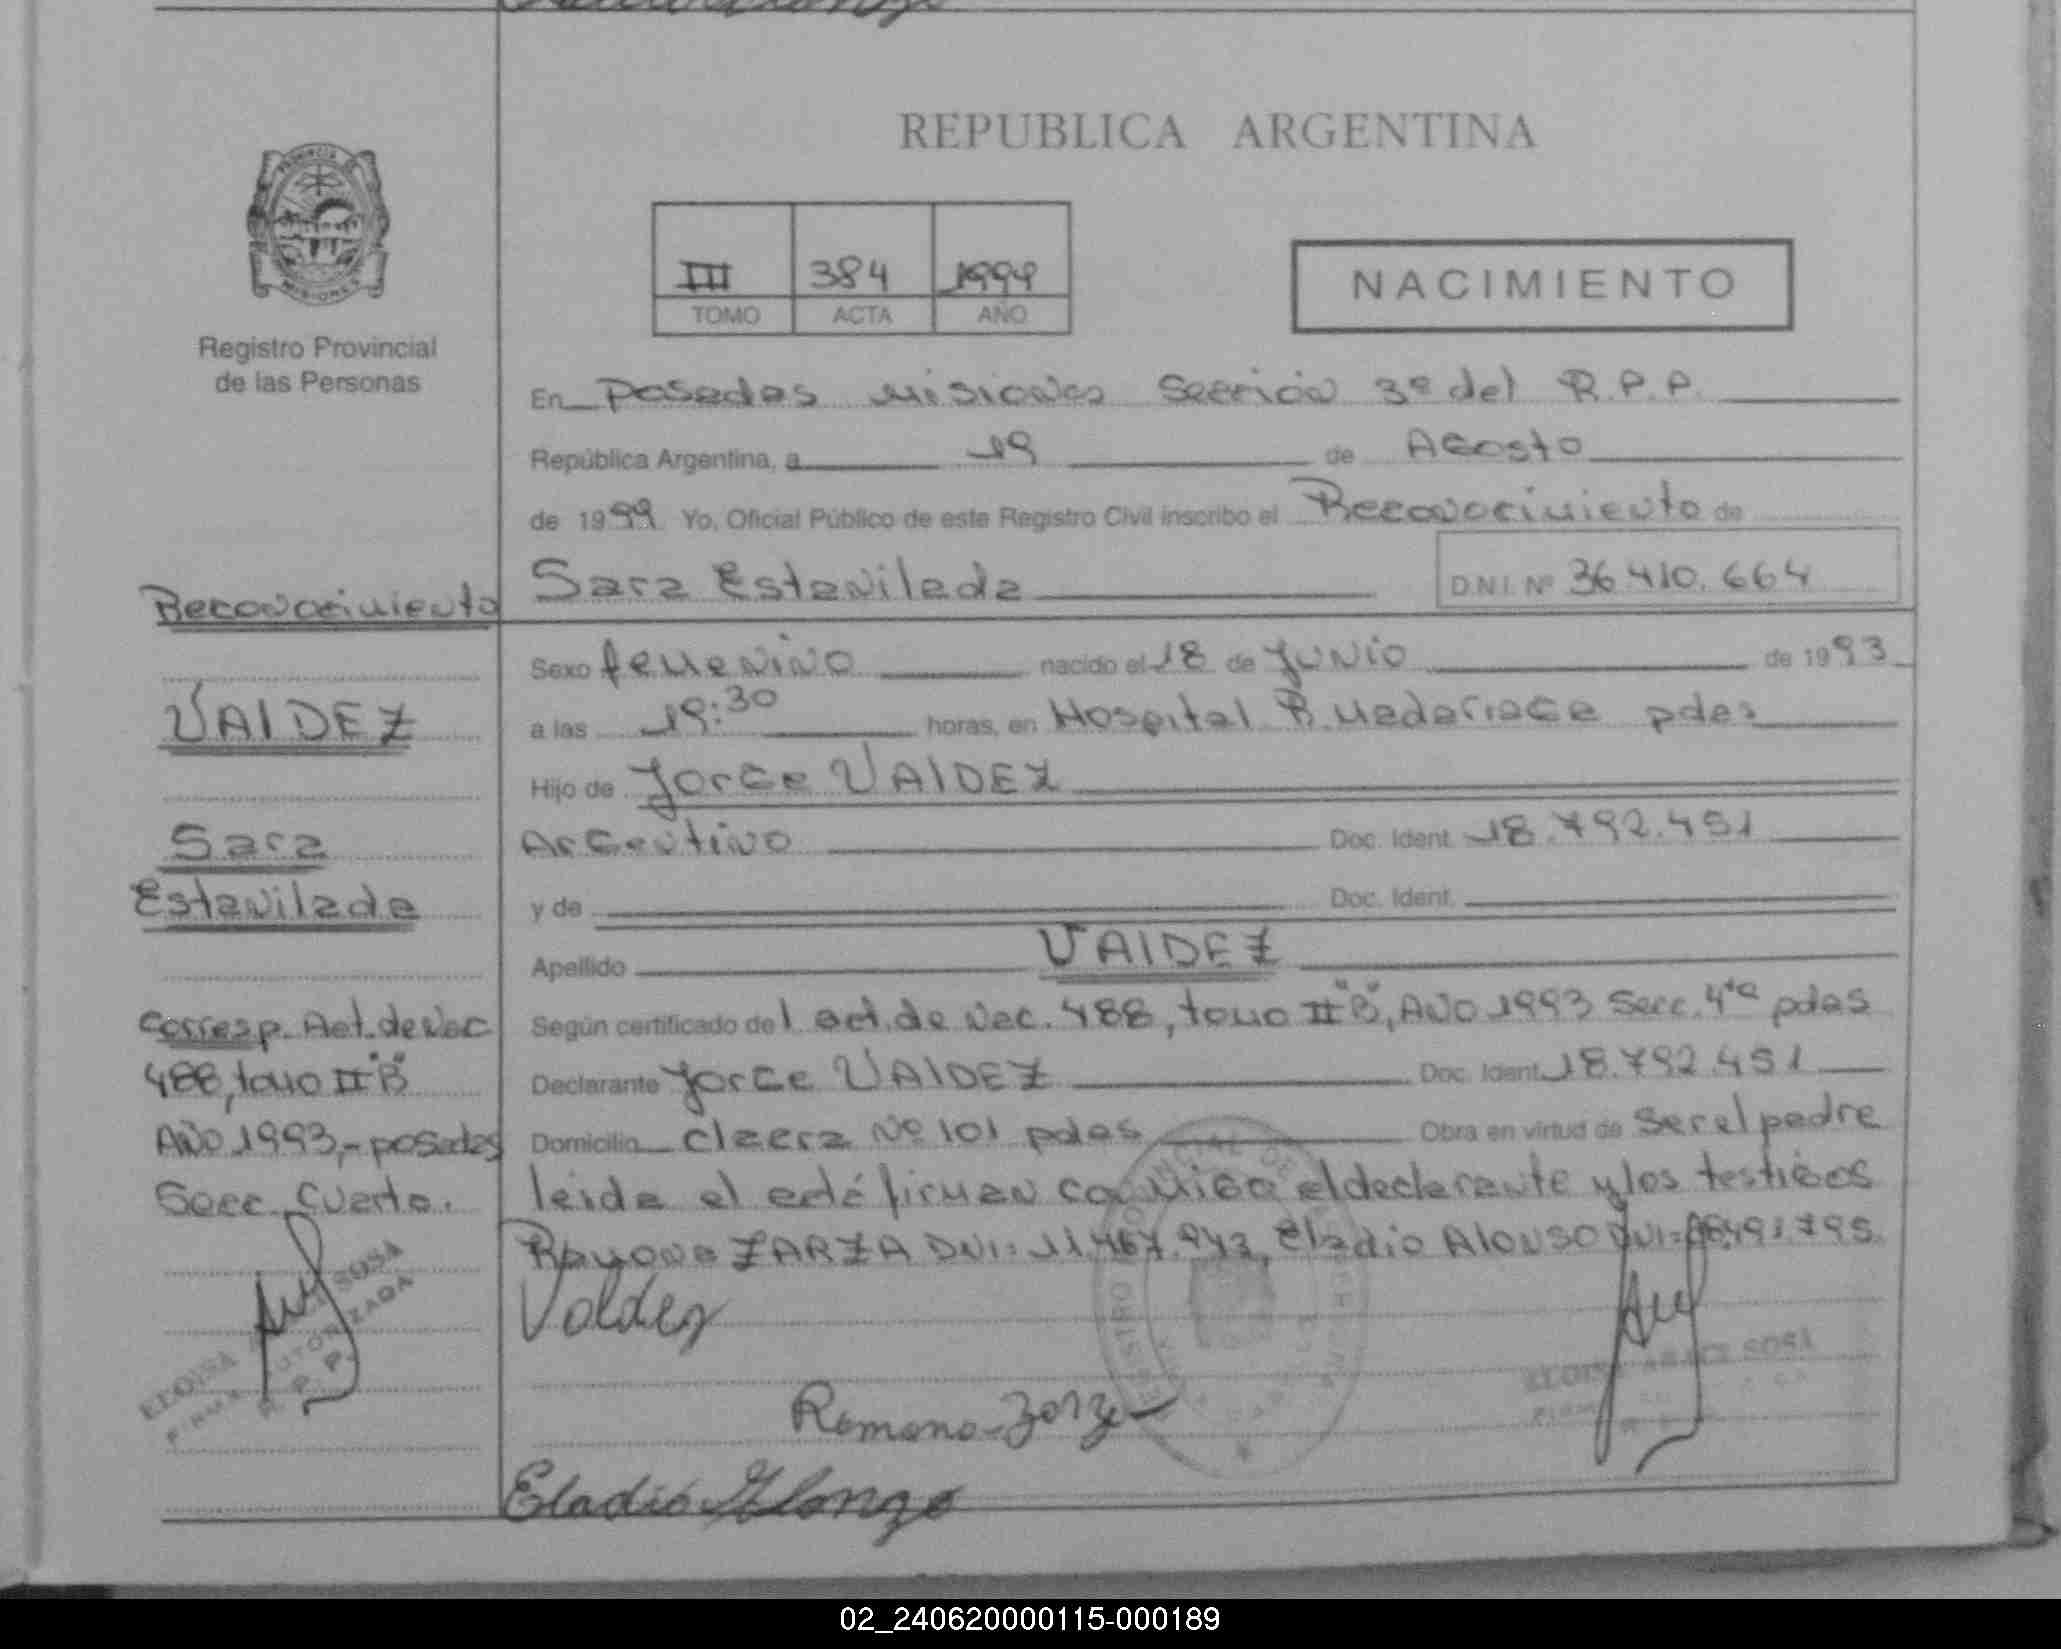 REPUBLICA ARGENTINA
PROVINCIA DE
MISIONES
Registro Provincial
de las Personas
III 384 1999
TOMO ACTA AÑO
NACIMIENTO
En Posadas Misiones Sección 3º del R.P.P.
República Argentina, a 19 de Agosto
de 1999 Yo, Oficial Público de este Registro Civil inscribo el Reconocimiento de
Sara Estanilada D.N.I. Nº 36.410.664
Sexo femenino nacido el 18 de Junio de 1993
a las 19:30 horas, en Hospital R. Madariaga pdas
Hijo de Jorge VAlDEZ
Argentino Doc. Ident. 18.792.451
y de Doc. Ident.
Apellido VAlDEZ
Según certificado del act. de Nac. 488, tomo II "B", Año 1993 Secc. 4ta pdas
Declarante Jorge VAlDEZ Doc. Ident. 18.792.451
Domicilio Nº 101 pdas Obra en virtud de ser el padre
leida el acta firman conmigo el declarante y los testigos
Ramona ZARZA DNI: 11.467.943, Eladio Alonso DNI:
Valdez
Ramona Zarza
Eladio Alonzo
Reconocimiento
VAlDEZ
Sara
Estanilada
Corresp. Act. de Nac
488, tomo II "B"
Año 1993,- posadas
Secc. Cuarta.
ELOISA SOSA
FIRMA AUTORIZADA
R. P. P.
ELOISA ARACI SOSA
02_240620000115-000189